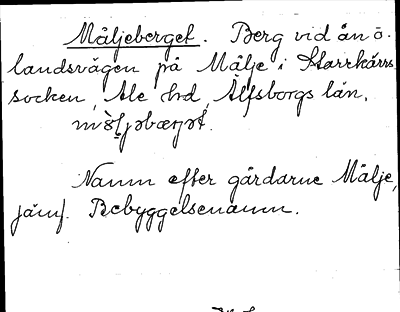 Mäljeberget. Berg vid ån ö.
landsvägen på Mälje i Starrkärrs
socken, Ale hrd, Älfsborgs län.
Namn efter gårdarne Mälje,
jämf. Bebyggelsenamn.